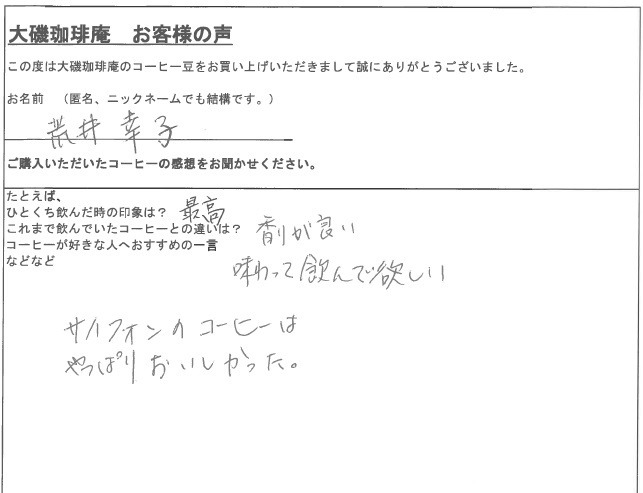 大磯珈琲庵　お客様の声
この度は大磯珈琲庵のコーヒー豆をお買い上げいただきまして誠にありがとうございました。
お名前　（匿名、ニックネームでも結構です。）
荒井 幸子
ご購入いただいたコーヒーの感想をお聞かせください。
たとえば、
ひとくち飲んだ時の印象は？ 最高
これまで飲んでいたコーヒーとの違いは？ 香りが良い
コーヒーが好きな人へおすすめの一言
などなど 味わって飲んで欲しい
サイフォンのコーヒーは
やっぱりおいしかった。